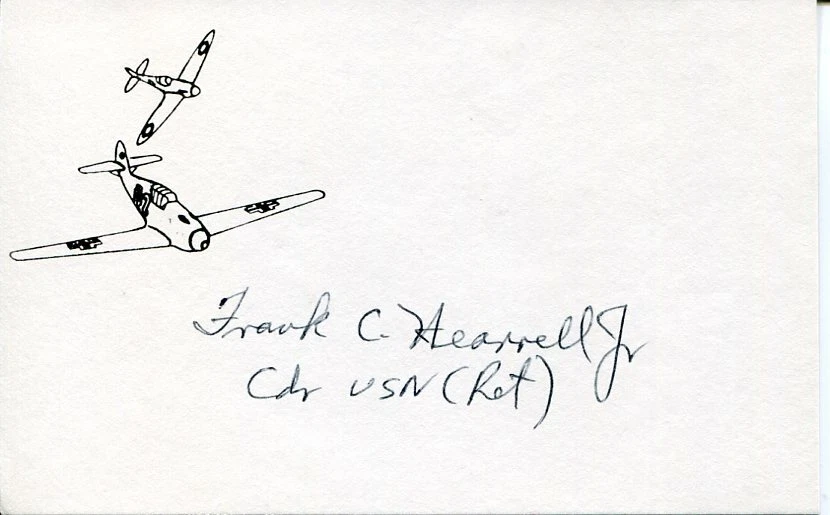 Frank C. Hearrell Jr
Cdr USN (Ret)